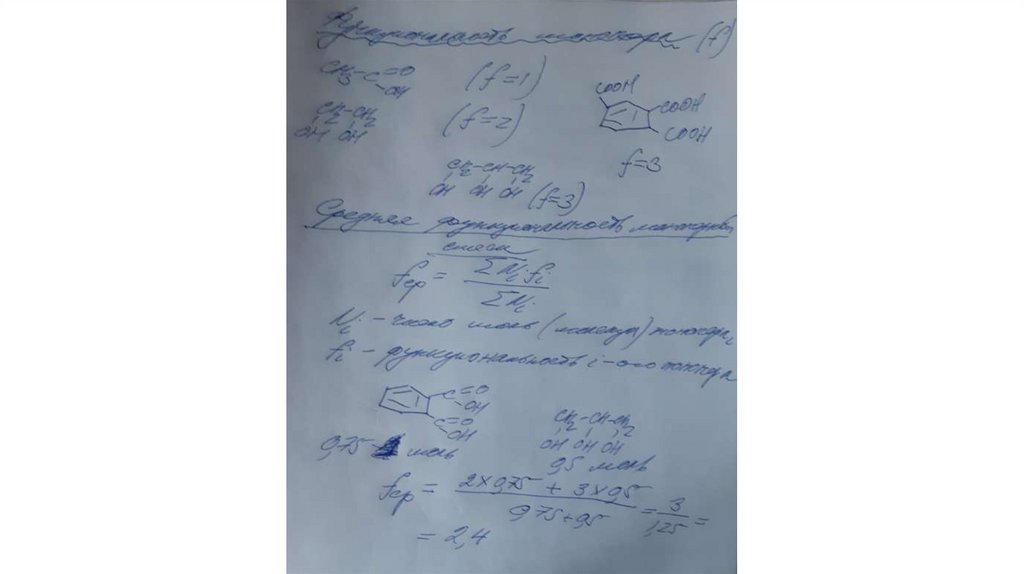 Функциональность мономера (f)
CH3-C=O
-OH
(f=1)
COOH
COOH
COOH
CH2-CH2
OH OH
(f=2)
f=3
CH2-CH-CH2
OH OH OH (f=3)
Средняя функциональность мономерной
смеси
fср = ΣNi fi / ΣNi
Ni - число моль (молекул) мономера i
fi - функциональность i-ого мономера
C=O
-OH
C=O
-OH
CH2-CH-CH2
OH OH OH
0,75 моль
0,5 моль
fср = 2×0,75 + 3×0,5 / 0,75+0,5 = 3 / 1,25 =
= 2,4